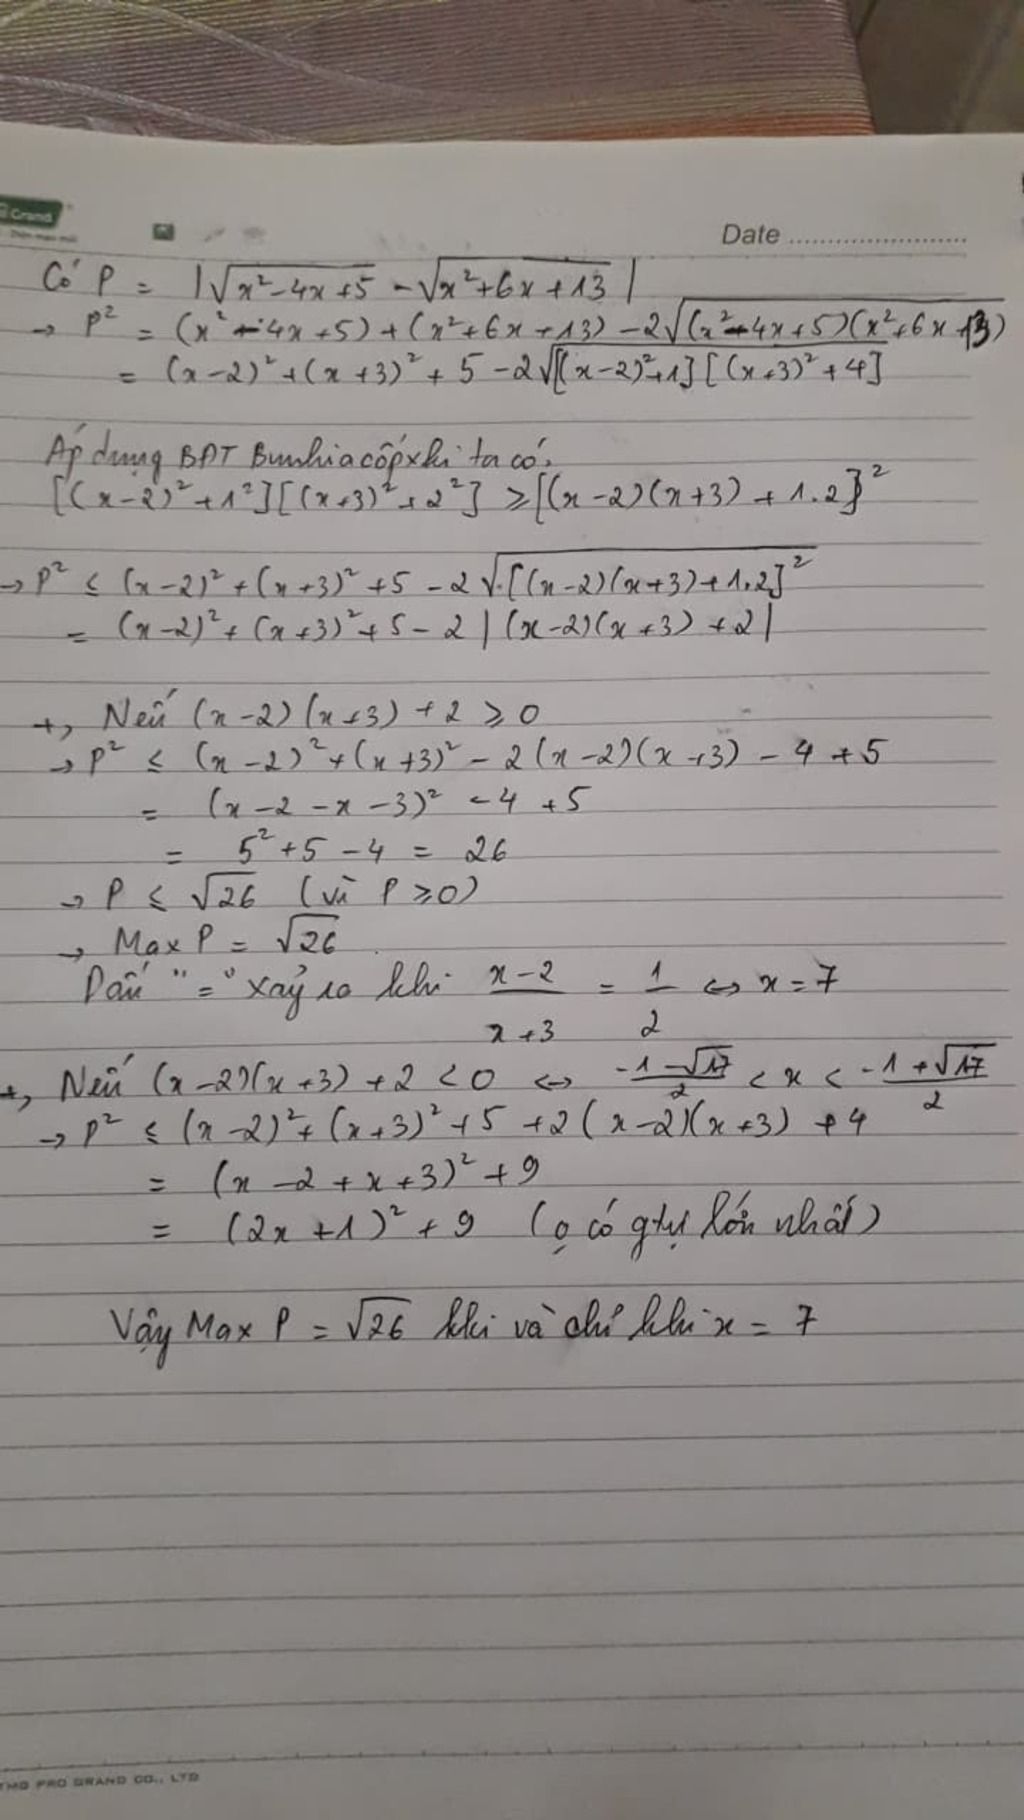 Grand
Date
Có P = |√(x²-4x+5) - √(x²+6x+13)|
→ P² = (x²-4x+5)+(x²+6x+13) -2√((x²-4x+5)(x²+6x+13))
= (x-2)²+(x+3)²+5-2√([(x-2)²+1][(x+3)²+4])
Áp dụng BĐT Bunhiacốpxki ta có.
[(x-2)²+1²][(x+3)²+2²] ≥ [(x-2)(x+3)+1.2]²
→ P² ≤ (x-2)²+(x+3)²+5-2√([(x-2)(x+3)+1.2]²)
= (x-2)²+(x+3)²+5-2|(x-2)(x+3)+2|
+, Nếu (x-2)(x+3)+2 ≥ 0
→ P² ≤ (x-2)²+(x+3)²-2(x-2)(x+3)-4+5
= (x-2-x-3)²-4+5
= 5²+5-4 = 26
→ P ≤ √26 (vì P ≥ 0)
→ Max P = √26
Dấu "=" xảy ra khi (x-2)/(x+3) = 1/2 ⇔ x = 7
+, Nếu (x-2)(x+3)+2 < 0 ⇔ (-1-√17)/2 < x < (-1+√17)/2
→ P² ≤ (x-2)²+(x+3)²+5+2(x-2)(x+3)+4
= (x-2+x+3)²+9
= (2x+1)²+9 (ọ có gtrị lớn nhất)
Vậy Max P = √26 khi và chỉ khi x = 7
TMG PRO GRAND CO., LTD